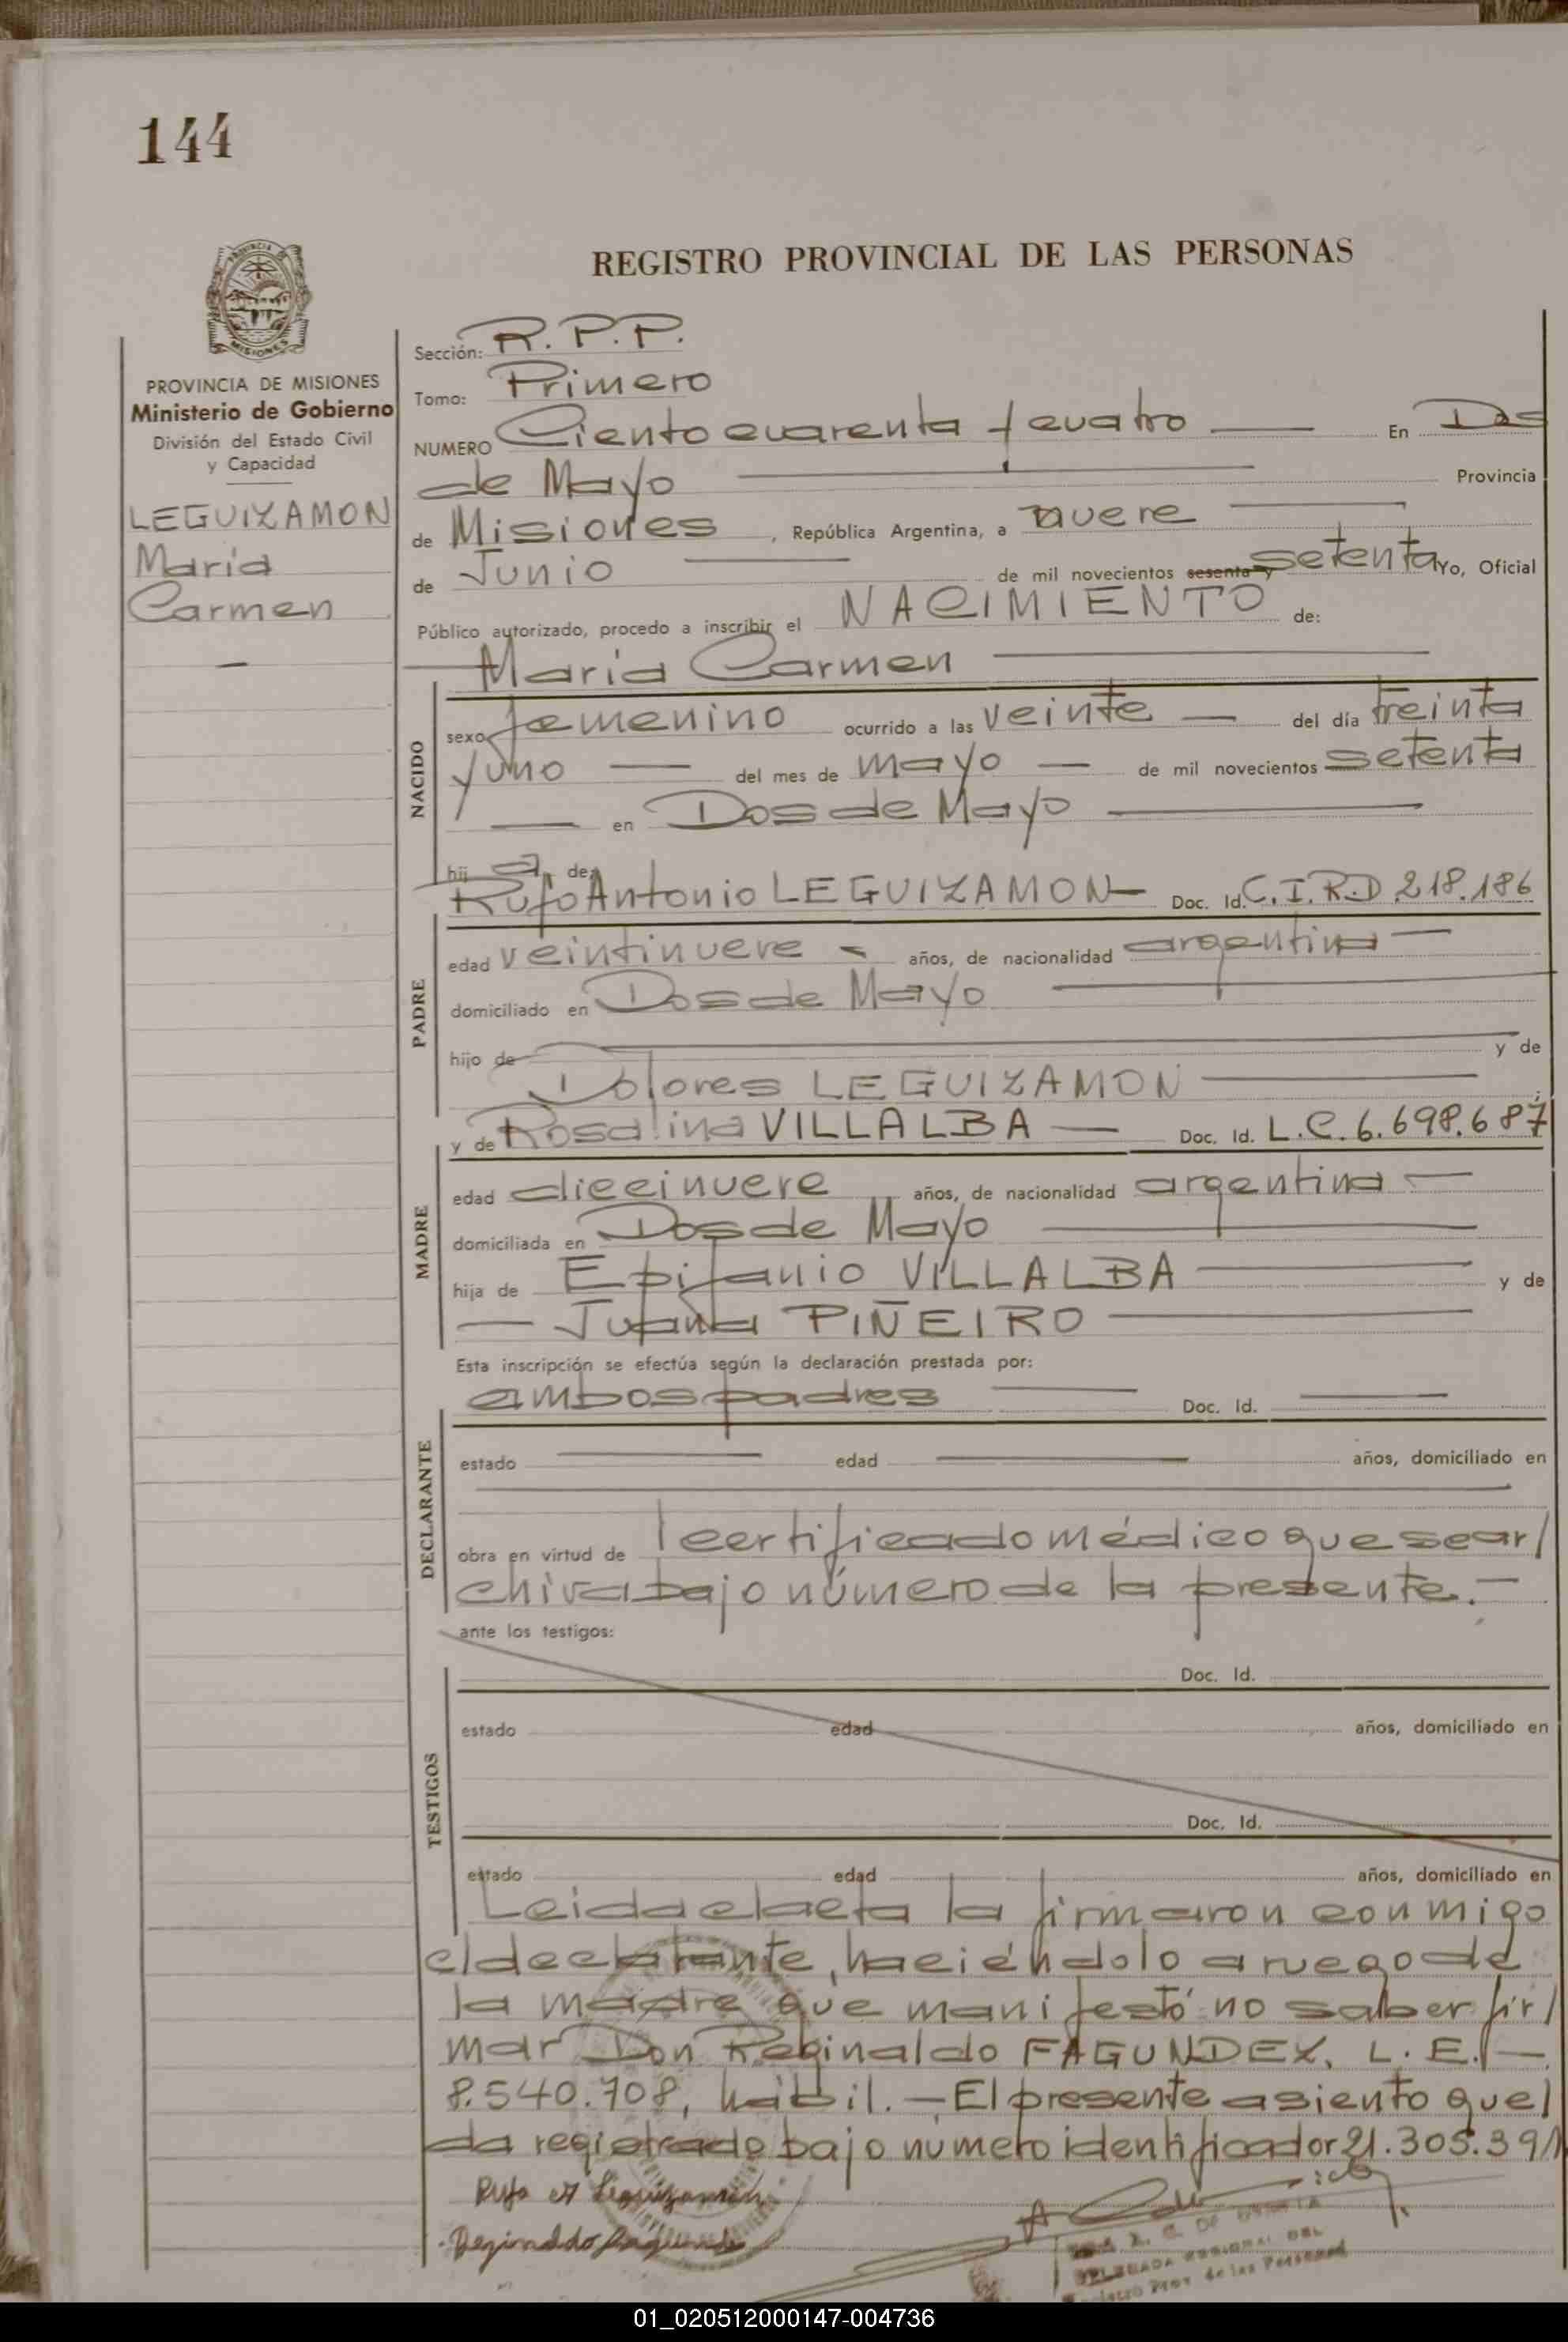 144
REGISTRO PROVINCIAL DE LAS PERSONAS
MISIONES
PROVINCIA DE MISIONES
Ministerio de Gobierno
División del Estado Civil
y Capacidad
LEGUIZAMON
María
Carmen
Sección: R.P.P.
Tomo: Primero
NUMERO Ciento cuarenta y cuatro En Dos
de Mayo Provincia
de Misiones, República Argentina, a nueve
de Junio de mil novecientos sesenta y setenta Yo, Oficial
Público autorizado, procedo a inscribir el NACIMIENTO de:
María Carmen
NACIDO
sexo femenino ocurrido a las veinte del día treinta
y uno del mes de mayo de mil novecientos setenta
en Dos de Mayo
hij a de:
Rufo Antonio LEGUIZAMON Doc. Id. C.I.R.D 218.186
PADRE
edad veintinueve años, de nacionalidad argentina
domiciliado en Dos de Mayo
hijo de y de
Dolores LEGUIZAMON
y de Rosalina VILLALBA Doc. Id. L.C. 6.698.687
MADRE
edad diecinueve años, de nacionalidad argentina
domiciliada en Dos de Mayo
hija de Epifanio VILLALBA y de
Juana PIÑEIRO
Esta inscripción se efectúa según la declaración prestada por:
ambos padres Doc. Id.
DECLARANTE
estado edad años, domiciliado en
obra en virtud de l certificado médico que se ar/
chiva bajo número de la presente.-
ante los testigos:
Doc. Id.
TESTIGOS
estado edad años, domiciliado en
Doc. Id.
estado edad años, domiciliado en
Leida el acta la firmaron conmigo
el declarante, haciéndolo a ruego de
la madre que manifestó no saber fir/
mar Don Reginaldo FAGUNDEZ, L.E.-
8.540.708, hábil.- El presente asiento que/
da registrado bajo número identificador 21.305.391
Rufo A Leguizamon
Reginaldo
Registro Prov. de las Personas
01_020512000147-004736